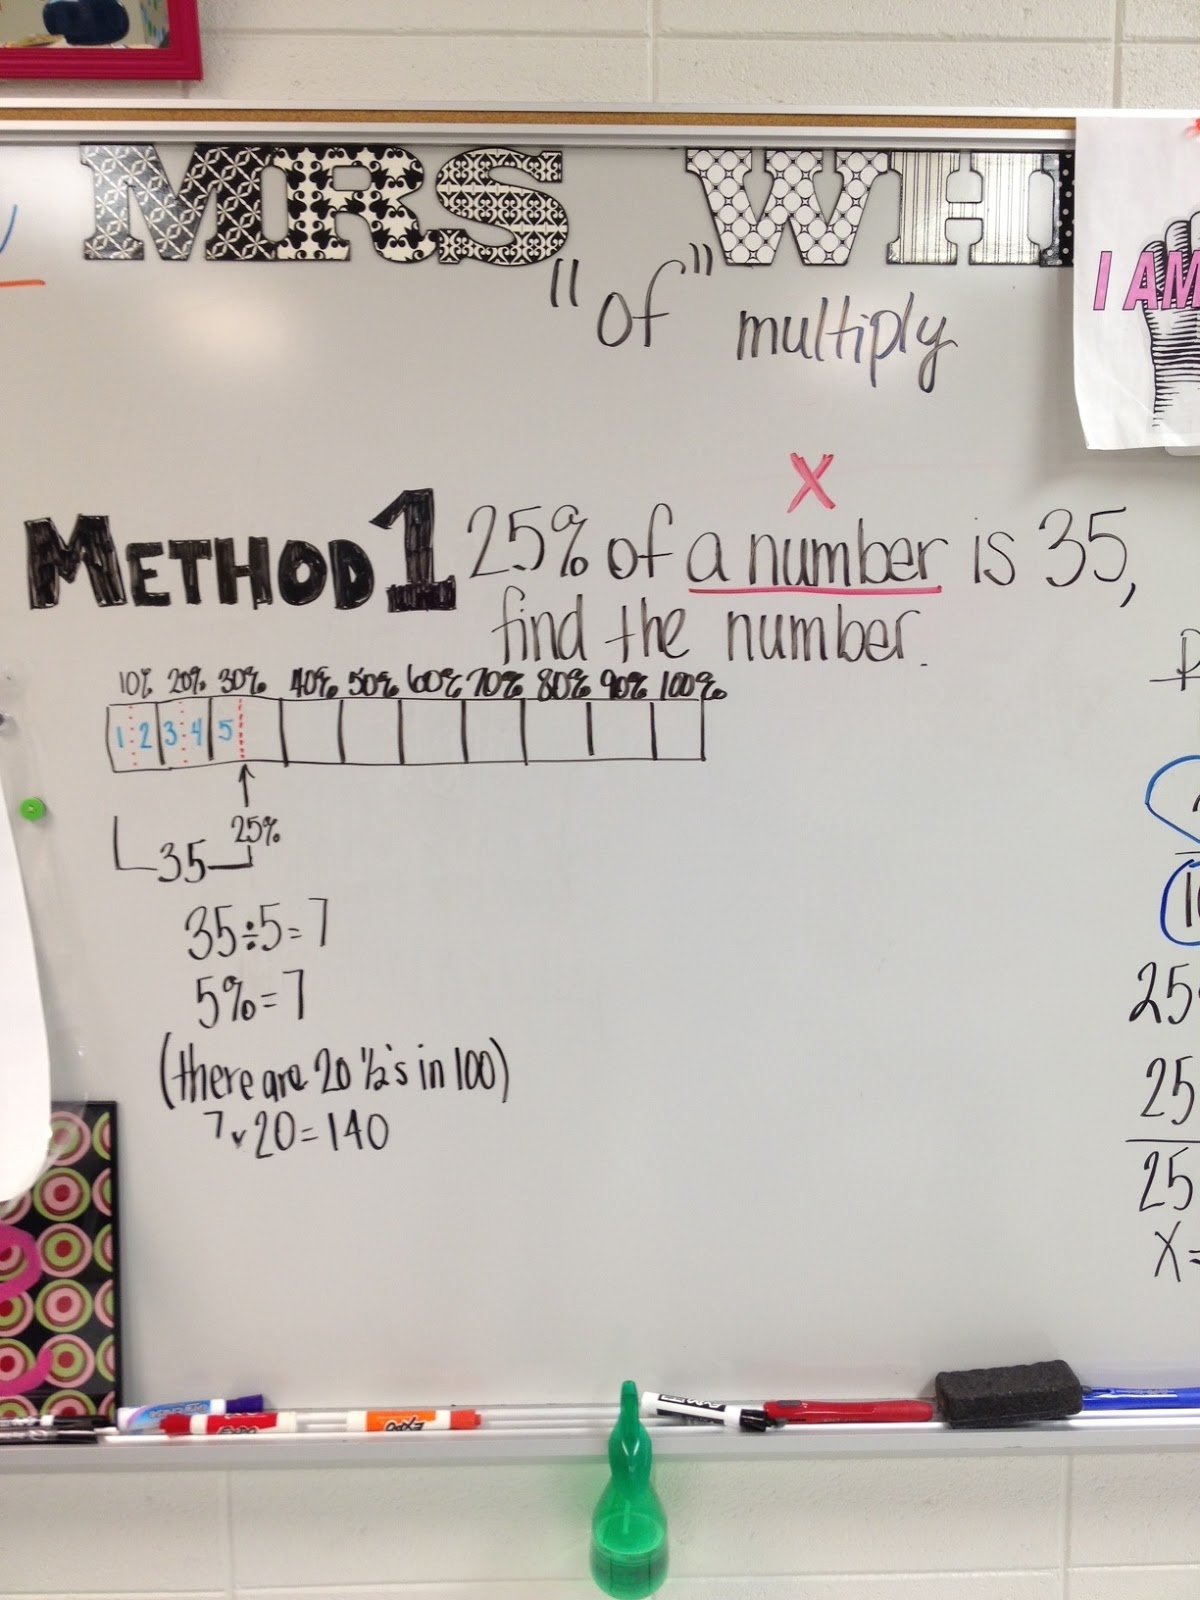 MRS WHI
"of" multiply
I AM
X
METHOD 1 25% of a number is 35,
find the number.
10% 20% 30% 40% 50% 60% 70% 80% 90% 100%
1 2 3 4 5
25%
35
35÷5=7
5%=7
(there are 20 ½'s in 100)
7×20=140
25
25
25
X=
EXPO
EXPO